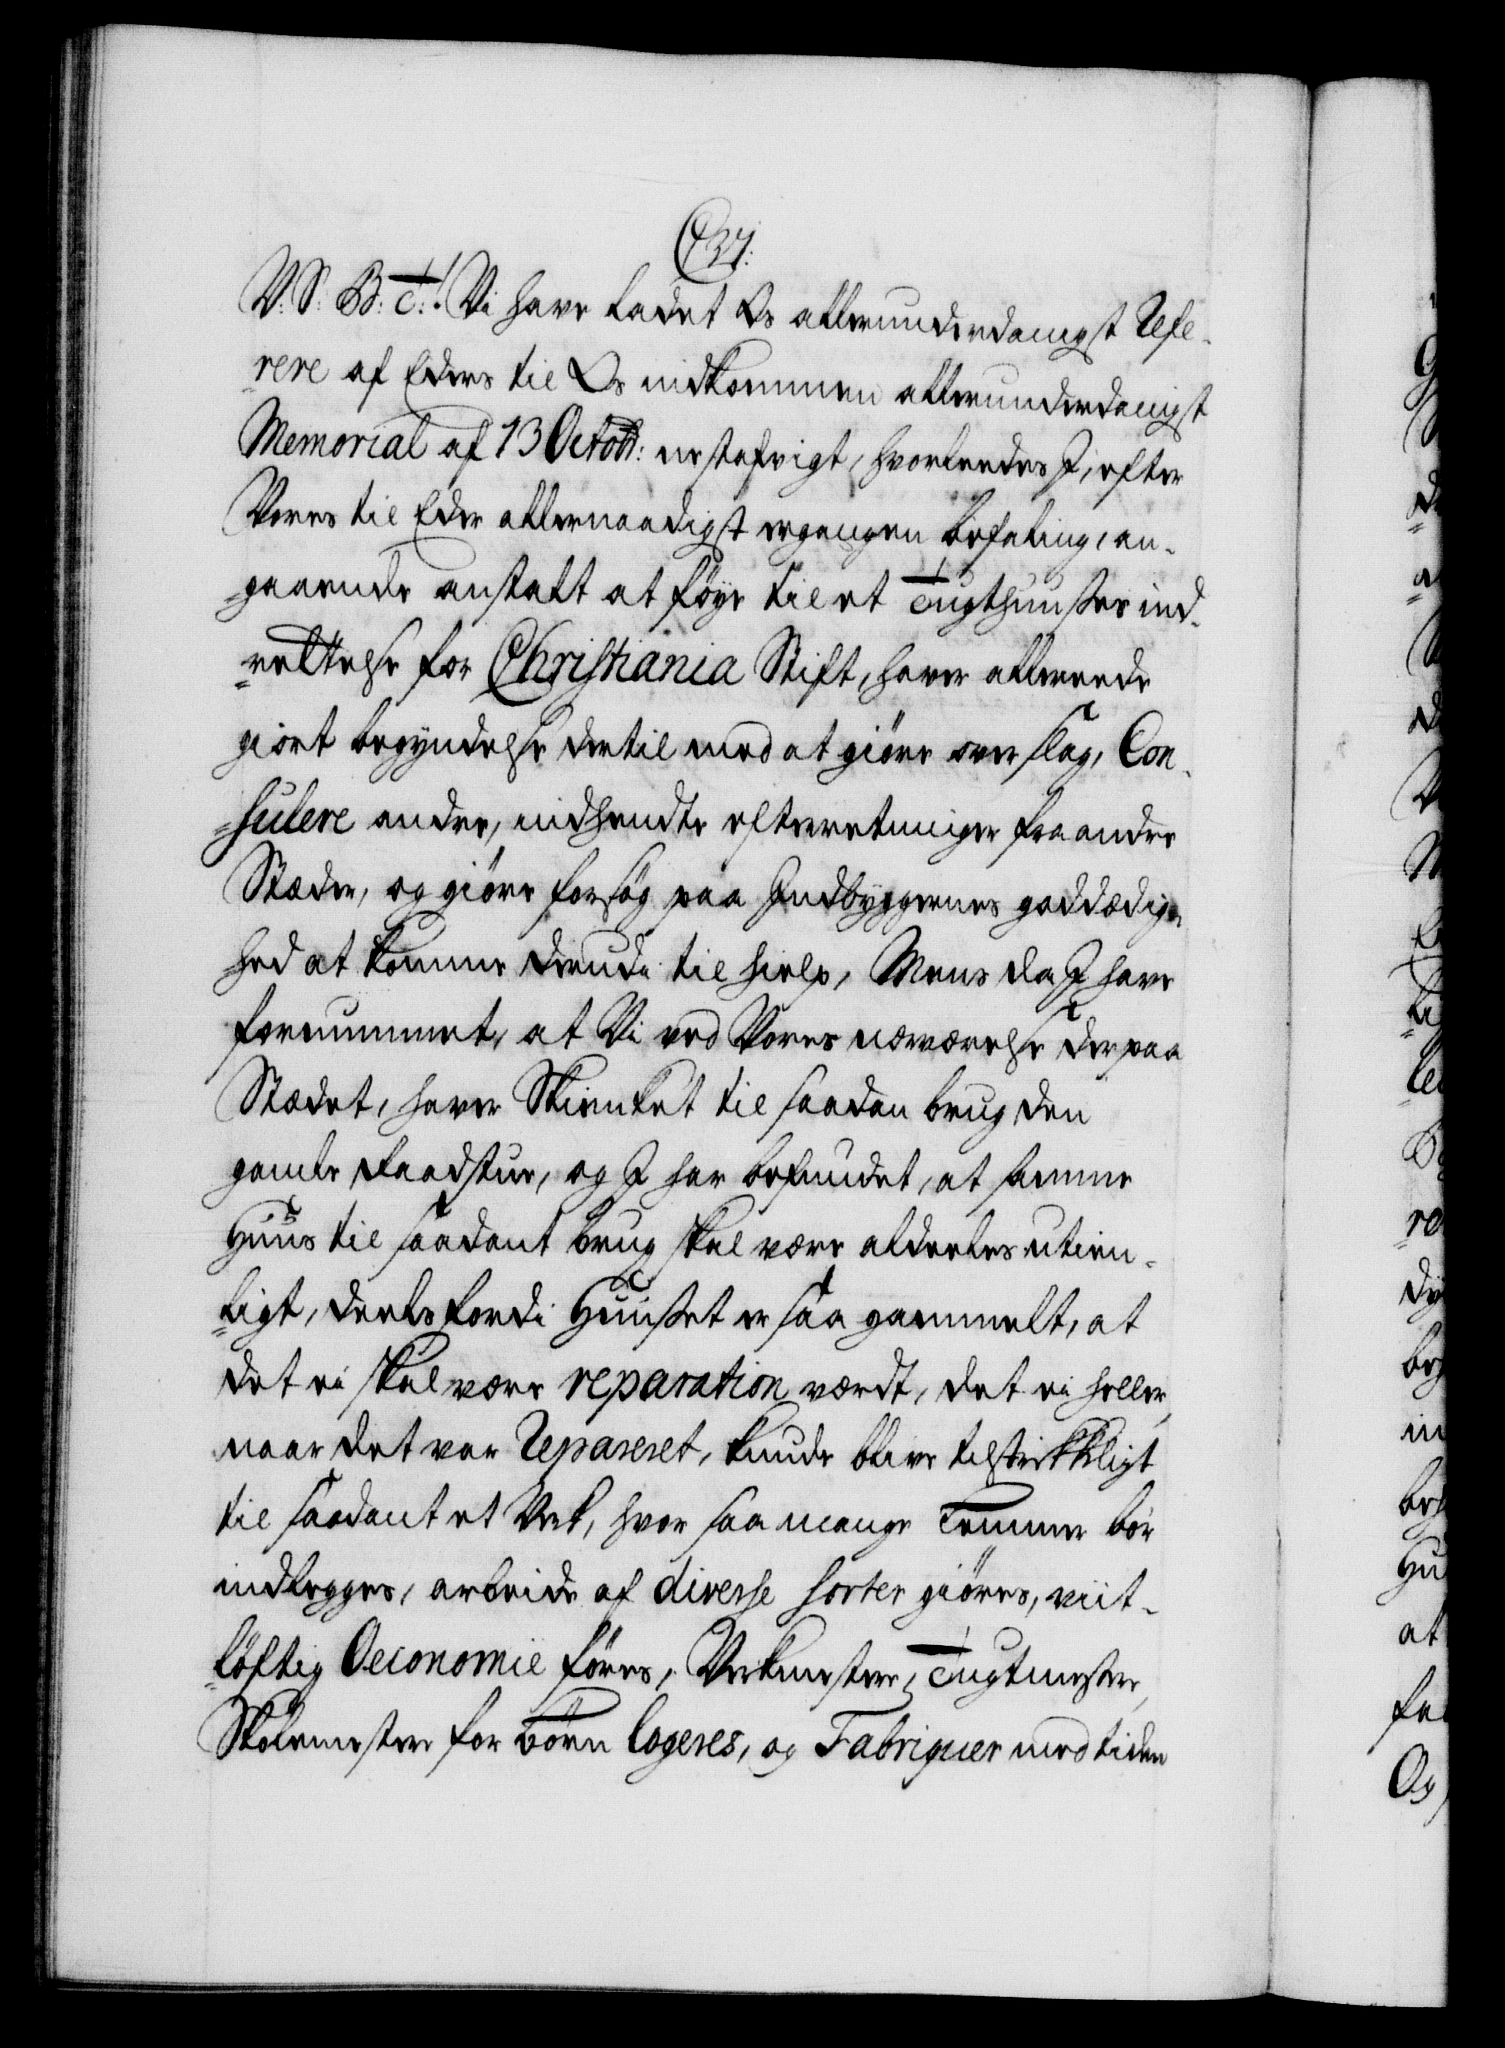 C VI:
V: S: B: T:! Vi have ladet Os allerunderdanigst Refe-
rere af Eders til Os indkommen allerunderdanigst
Memorial af 13 Octob: nestafvigt, hvorledes I, efter
Vores til Eder allernaadigst ergangen befaling, an-
gaaende anstalt at föye til et Tugthuuses ind-
rettelse for Christiania Stift, haver allereede
giort begyndelse dertil med at giöre overslag, Con-
sulere andre, indhendte efterretninger fra andre
Stæder, og giöre forsög paa Indbyggernes goddædig-
hed at komme derudi til hielp, Mens da I have
fornummet, at Vi ved Vores nærværelse der paa
Stædet, haver Skienket til saadan brug den
gamle Raadstue, og I har befundet, at samme
Huus til saadant brug skal være aldeeles utien-
ligt, deels fordi Huuset er saa gammelt, at
det ei skal være reparation værdt, det ei heller,
naar det var Repareret, kunde blive tilstrekkligt
til saadant et Verk, hvor saa mange Lemmer bör
indlegges, arbeide af diverse sorter giöres, viit-
löftig Oeconomie föres, Verkmestere, Tugtmestere,
Skolemestere for Börn logeres, og Fabriquer med tiden